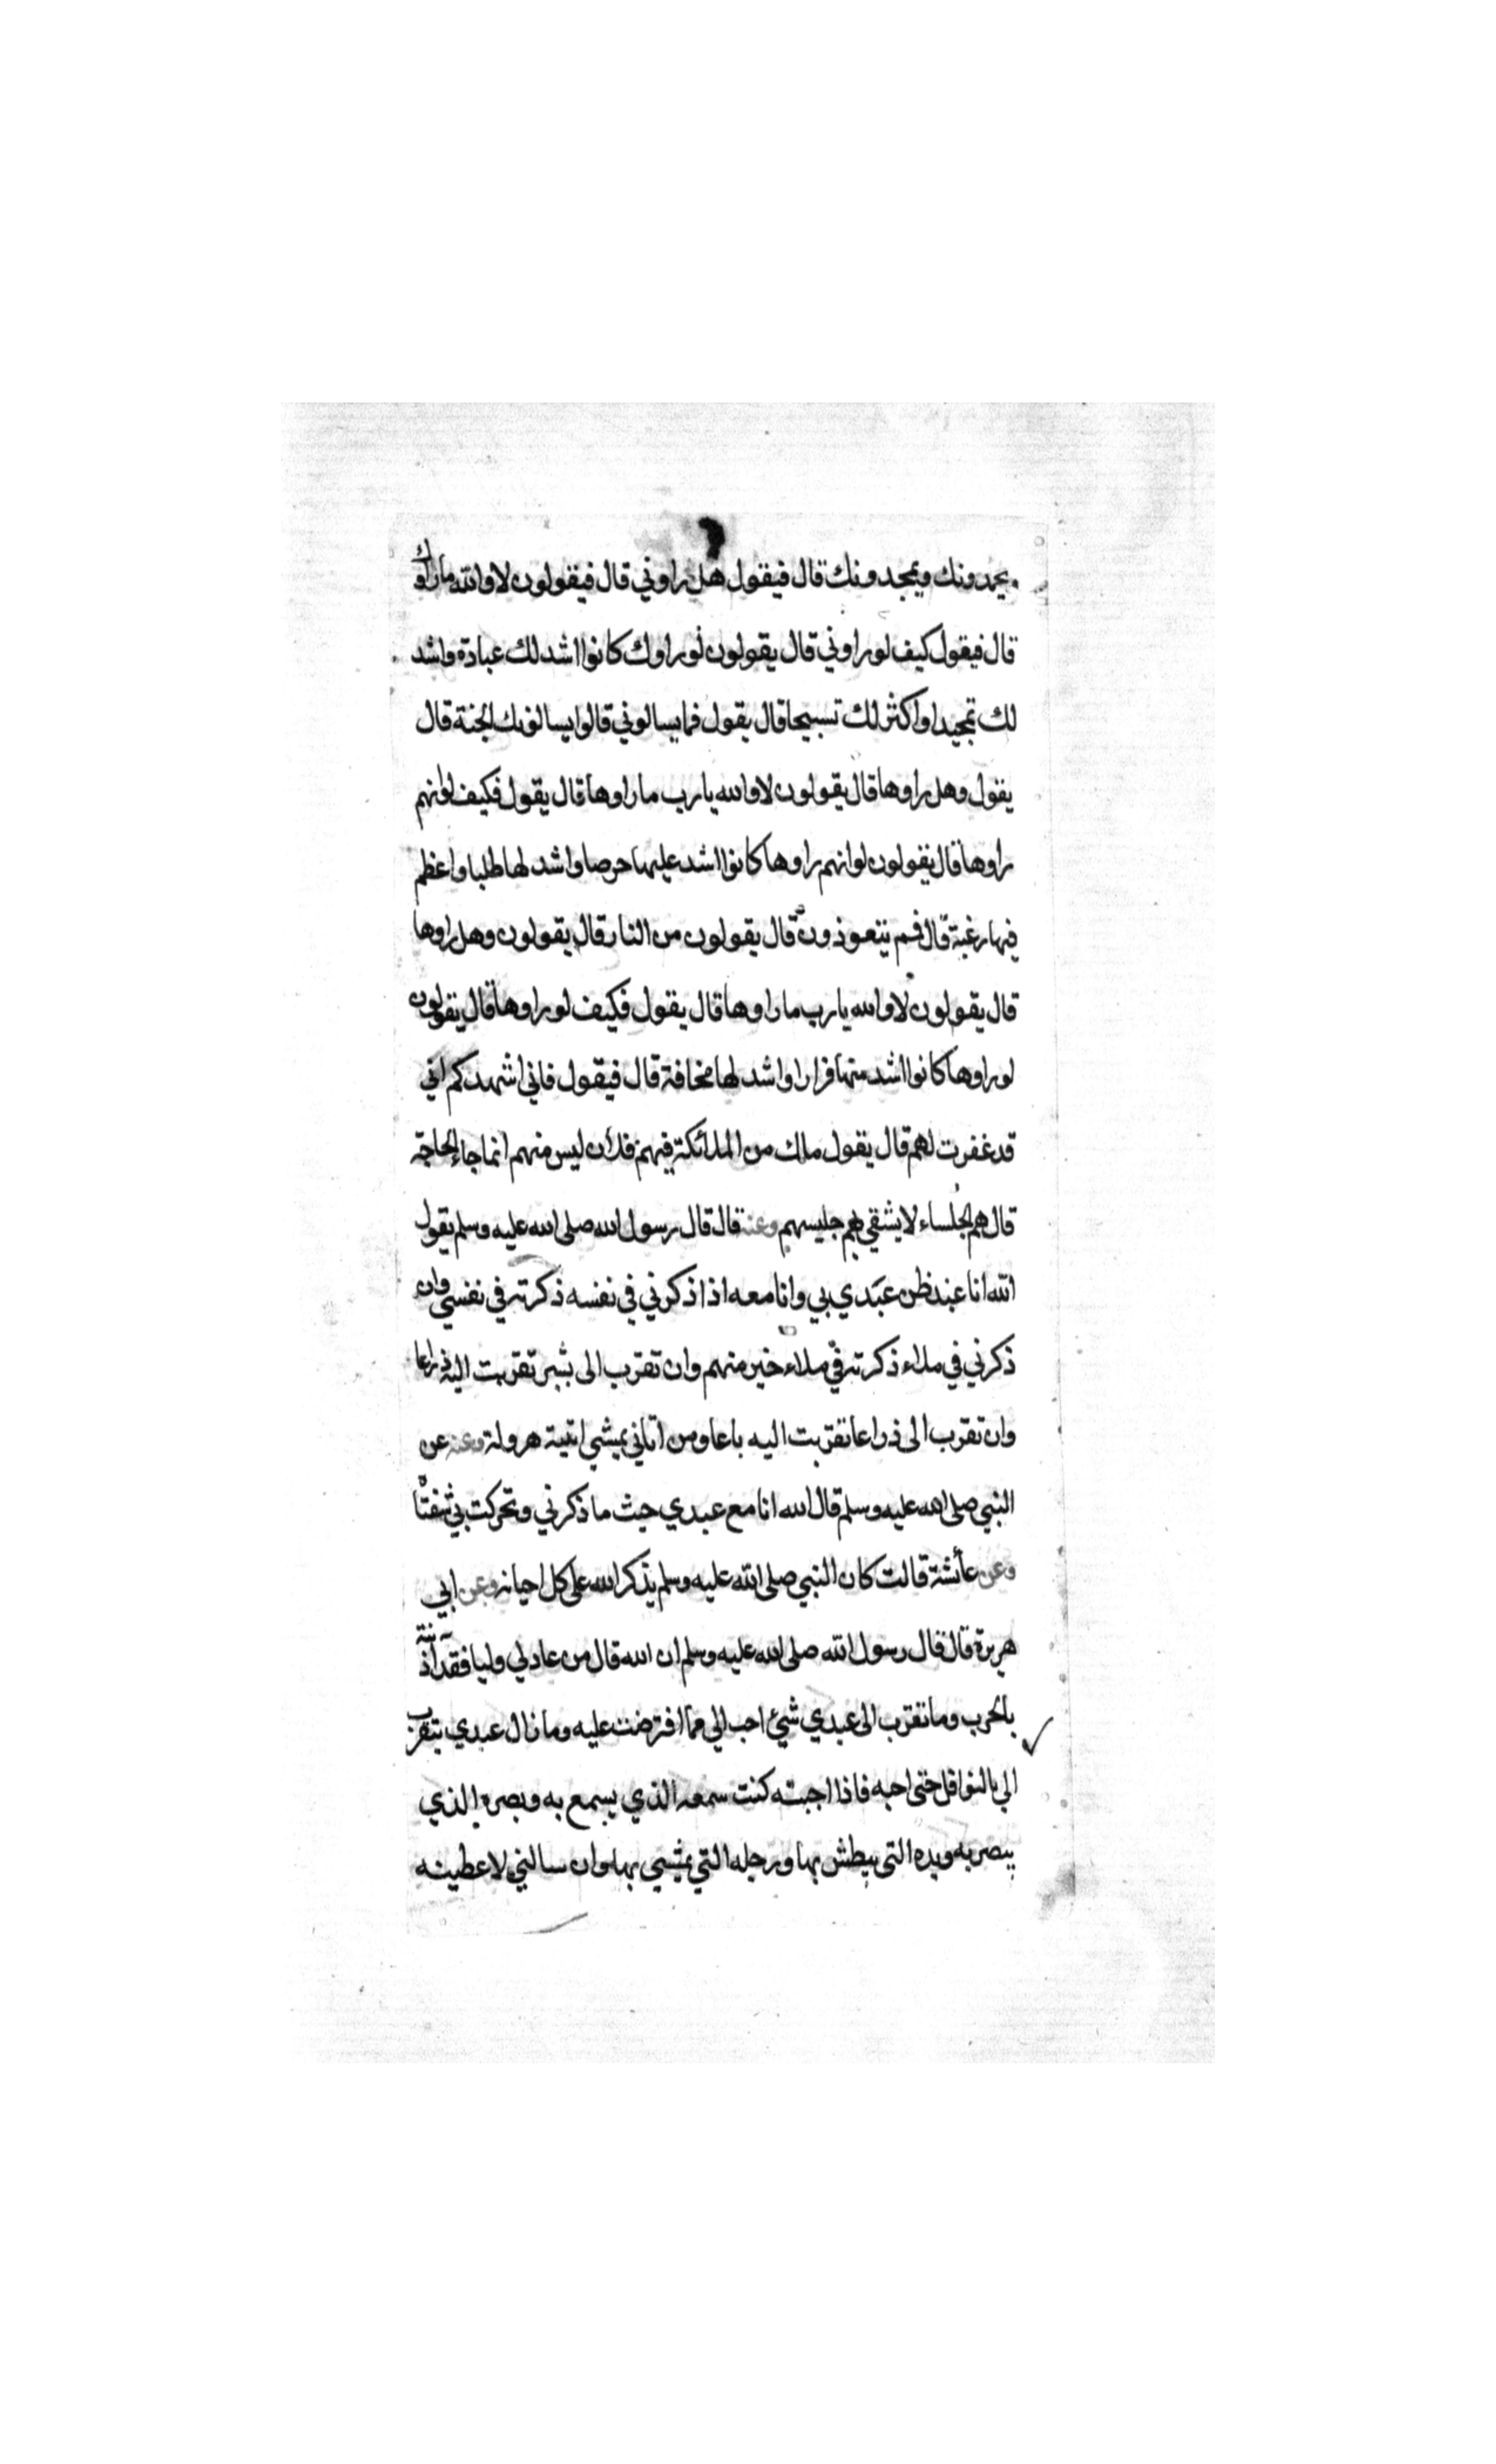 يحمدونك ويمجدونك قال فيقول هل راوني قال فيقولون لا والله ماراوك
قال فيقول كيف لو راوني قال يقولون لو راوك كانوا اشد لك عبادة واشد
لك تمجيدا واكثر لك تسبيحا قال يقول فما يسالوني قالوا يسالونك الجنة قال
يقول وهل راوها قال يقولون لا والله يارب ما راوها قال يقول فكيف لو انهم
راوها قال يقولون لو انهم راوها كانوا اشد عليها حرصا واشد لها طلبا واعظم
فيها رغبة قال فمم يتعوذون قال يقولون من النار قال يقولون وهل راوها
قال يقولون لا والله يارب ما راوها قال يقول فكيف لو راوها قال يقولون
لو راوها كانوا اشد منها فرارا واشد لها مخافة قال فيقول فاني اشهدكم اني
قد غفرت لهم قال يقول ملك من الملائكة فيهم فلان ليس منهم انما جاء لحاجة
قال هم الجلساء لا يشقي بهم جليسهم وعنه قال قال رسول الله صلى الله عليه وسلم يقول
الله انا عند ظن عبدي بي وانا معه اذا ذكرني في نفسه ذكرته في نفسي وان
ذكرني في ملاء ذكرته في ملاء خير منهم وان تقرب الى بشبر تقربت اليه ذراعا
وان تقرب الى ذراعا تقربت اليه باعا ومن اتاني يمشي اتيته هرولة وعنه عن
النبي صلى الله عليه وسلم قال الله انا مع عبدي حيث ما ذكرني وتحركت بي شفتا
وعن عائشة قالت كان النبي صلى الله عليه وسلم يذكر الله على كل احيانه وعن ابي
هريرة قال قال رسول الله صلى الله عليه وسلم ان الله قال من عاد لي وليا فقد اذنته
بالحرب وما تقرب الى عبدي شئ احب الي مما افترضت عليه وما زال عبدي يتقرب
الي بالنوافل حتى احبه فاذا احببته كنت سمعه الذي يسمع به وبصره الذي
يبصر به ويده التى يبطش بها ورجله التي يمشي بها وان سالني لاعطينه